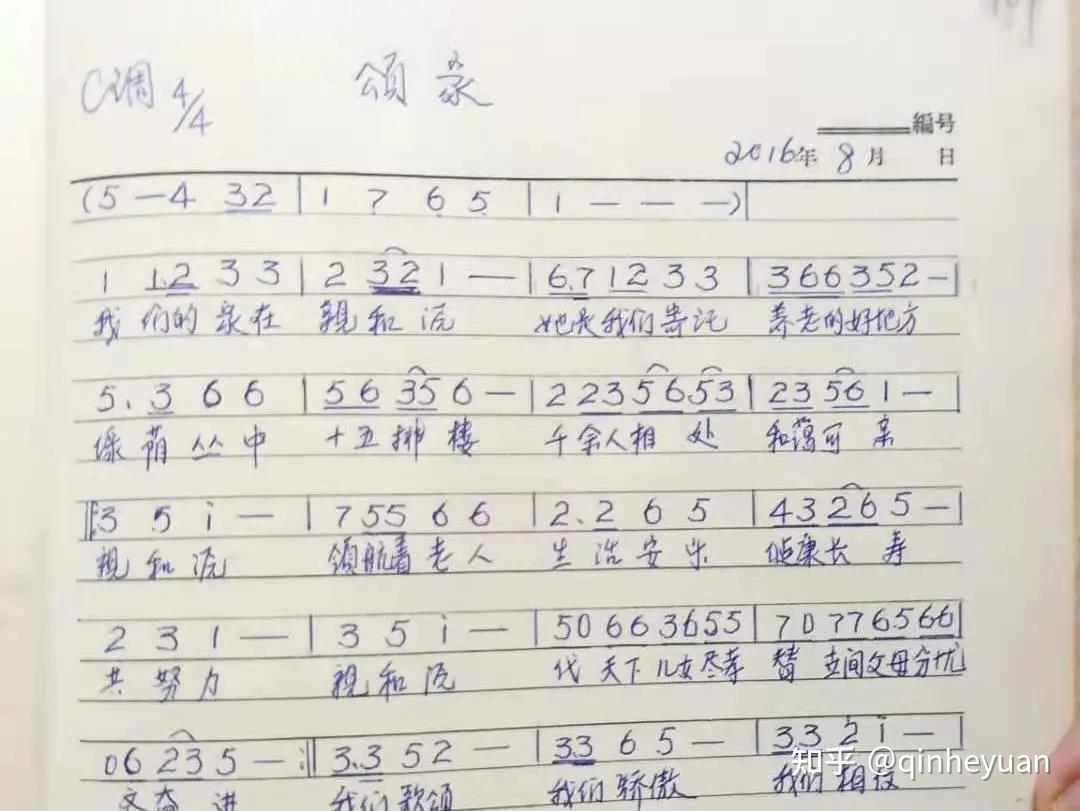 C调 4/4 頌家
編号
2016年 8月 日
(5 — 4 32 | 1 7 6 5 | 1 — — —) |
1 1.2 3 3 | 2 32 1 — | 6.7 12 3 3 | 3 66 35 2 — |
我们的家在 親和沅 她是我们寄记 养老的好地方
5. 3 6 6 | 56 35 6 — | 2 23 56 53 | 23 56 1 — |
绿荫丛中 十五排楼 千余人相处 和蔼可亲
‖: 3 5 i — | 7 55 6 6 | 2. 2 6 5 | 43 26 5 — |
親和沅 领航着老人 生活安乐 健康长寿
2 3 1 — | 3 5 i — | 50 66 36 55 | 70 77 65 66 |
共努力 親和沅 代天下儿女尽孝 替世间父母分忧
06 23 5 — :‖ 3.3 5 2 — | 33 6 5 — | 33 2 i — |
我们歌颂 我们骄傲 我们相
知乎 @qinheyuan